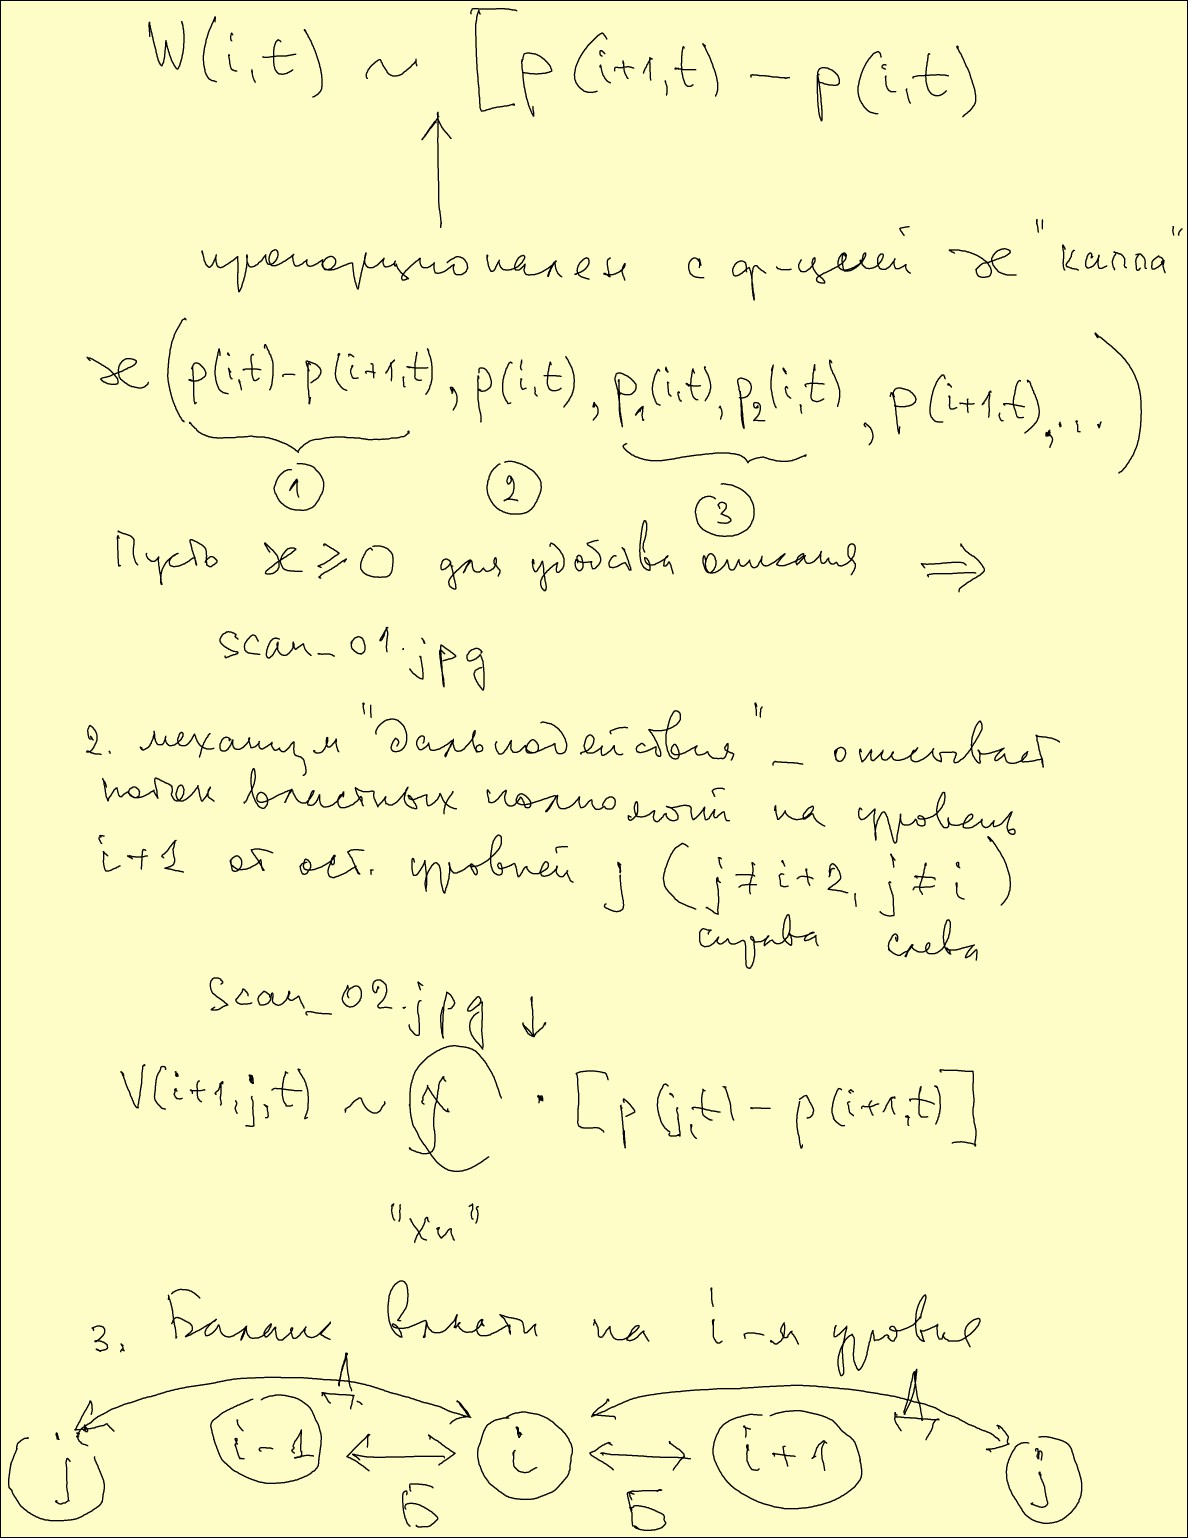 W(i,t) ~ [p(i+1,t) – p(i,t)
↑
пропорционален с ф-цией ϰ "каппа"
ϰ(p(i,t)-p(i+1,t), p(i,t), p₁(i,t), p₂(i,t), p(i+1,t), ...)
1 2 3
Пусть ϰ ⩾ 0 для удобства описания ⇒
scan_01.jpg
2. механизм "дальнодействия" – описывает
поток властных полномочий на уровень
i+1 от ост. уровней j (j ≠ i+2, j ≠ i)
справа слева
scan_02.jpg ↓
V(i+1,j,t) ~ χ · [p(j,t) – p(i+1,t)]
"хи"
3. Баланс власти на i-м уровне
Д Д
j i-1 ↔ i ↔ i+1 j
Б Б